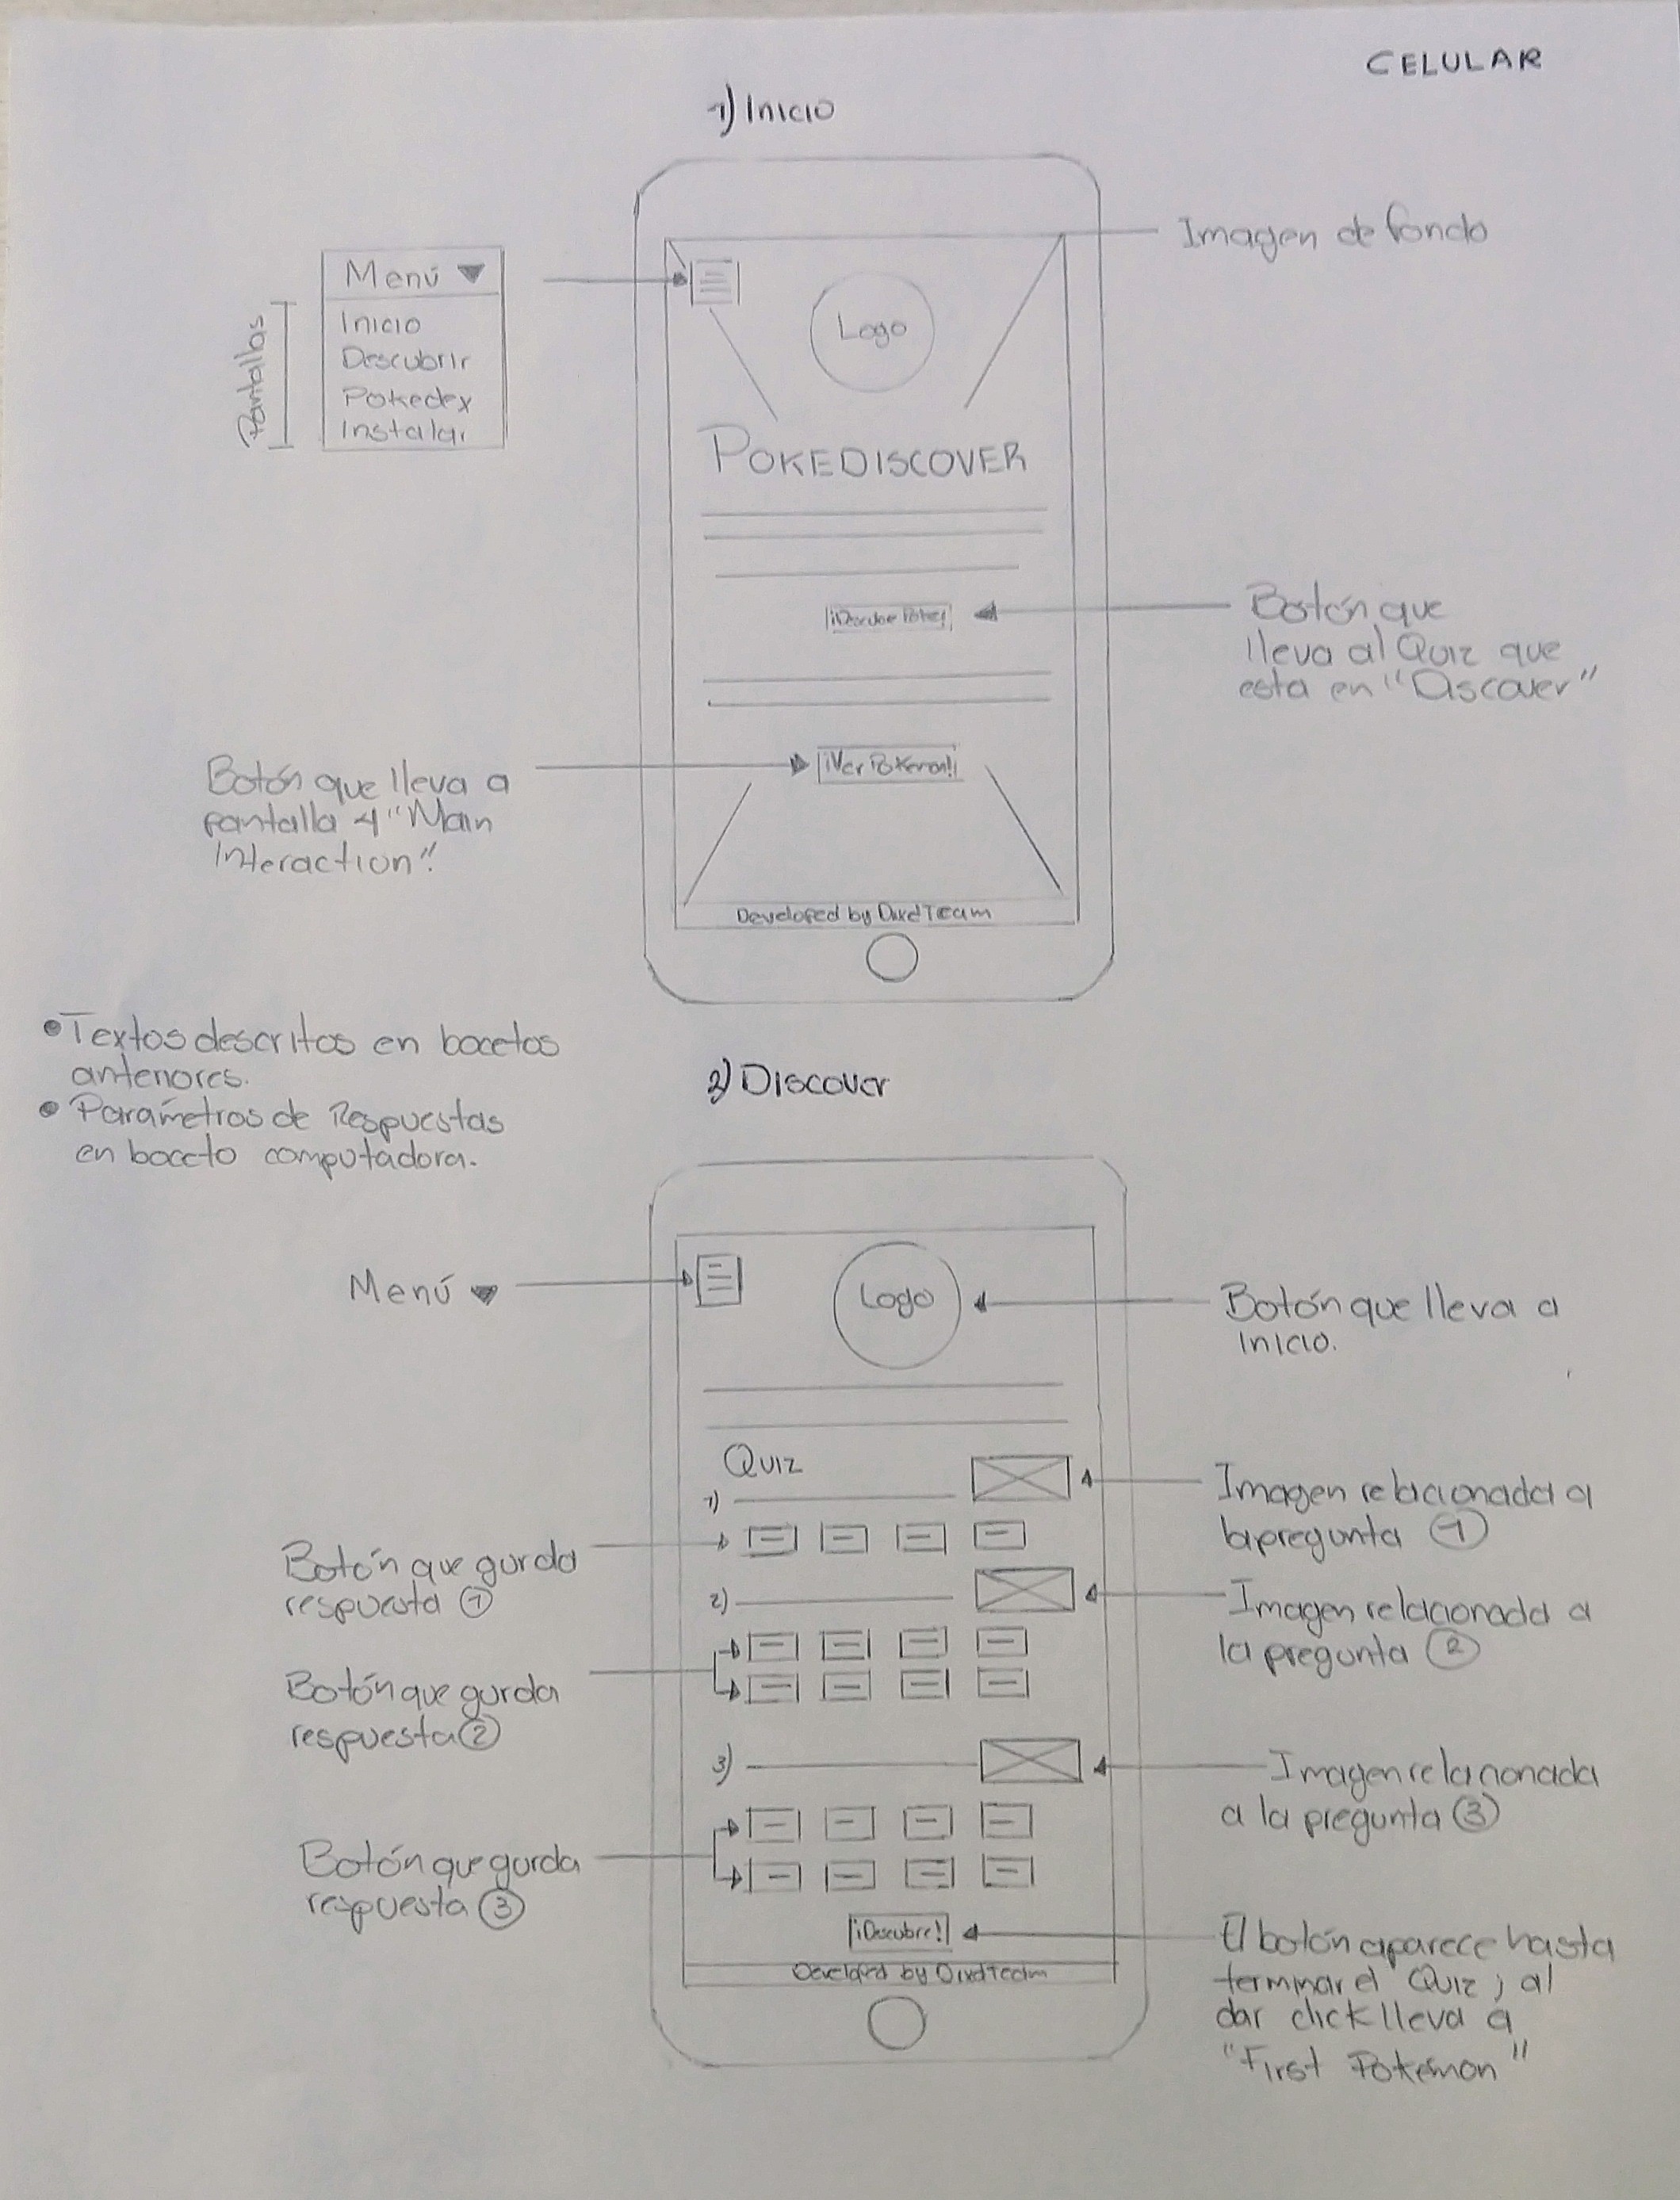 CELULAR
1) Inicio
Imagen de fondo
Menú
Inicio
Descubrir
Pokedex
Instalar
Pantallas
Logo
POKEDISCOVER
Botón que
lleva al Quiz que
esta en "Discover"
¡Ver Pokemon!
Botón que lleva a
pantalla 4 "Main
Interaction"
Developed by DixdTeam
• Textos descritos en bocetos
anteriores.
• Parámetros de Respuestas
en boceto computadora.
2) Discover
Menú
Logo
Botón que lleva a
Inicio.
Quiz
1)
Imagen relacionada a
la pregunta 1
Botón que gurda
respuesta 1
2)
Imagen relacionada a
la pregunta 2
Botón que gurda
respuesta 2
3)
Imagen relacionada
a la pregunta 3
Botón que gurda
respuesta 3
¡Descubre!
El botón aparece hasta
terminar el Quiz, al
dar click lleva a
"First Pokémon"
Developed by DixdTeam